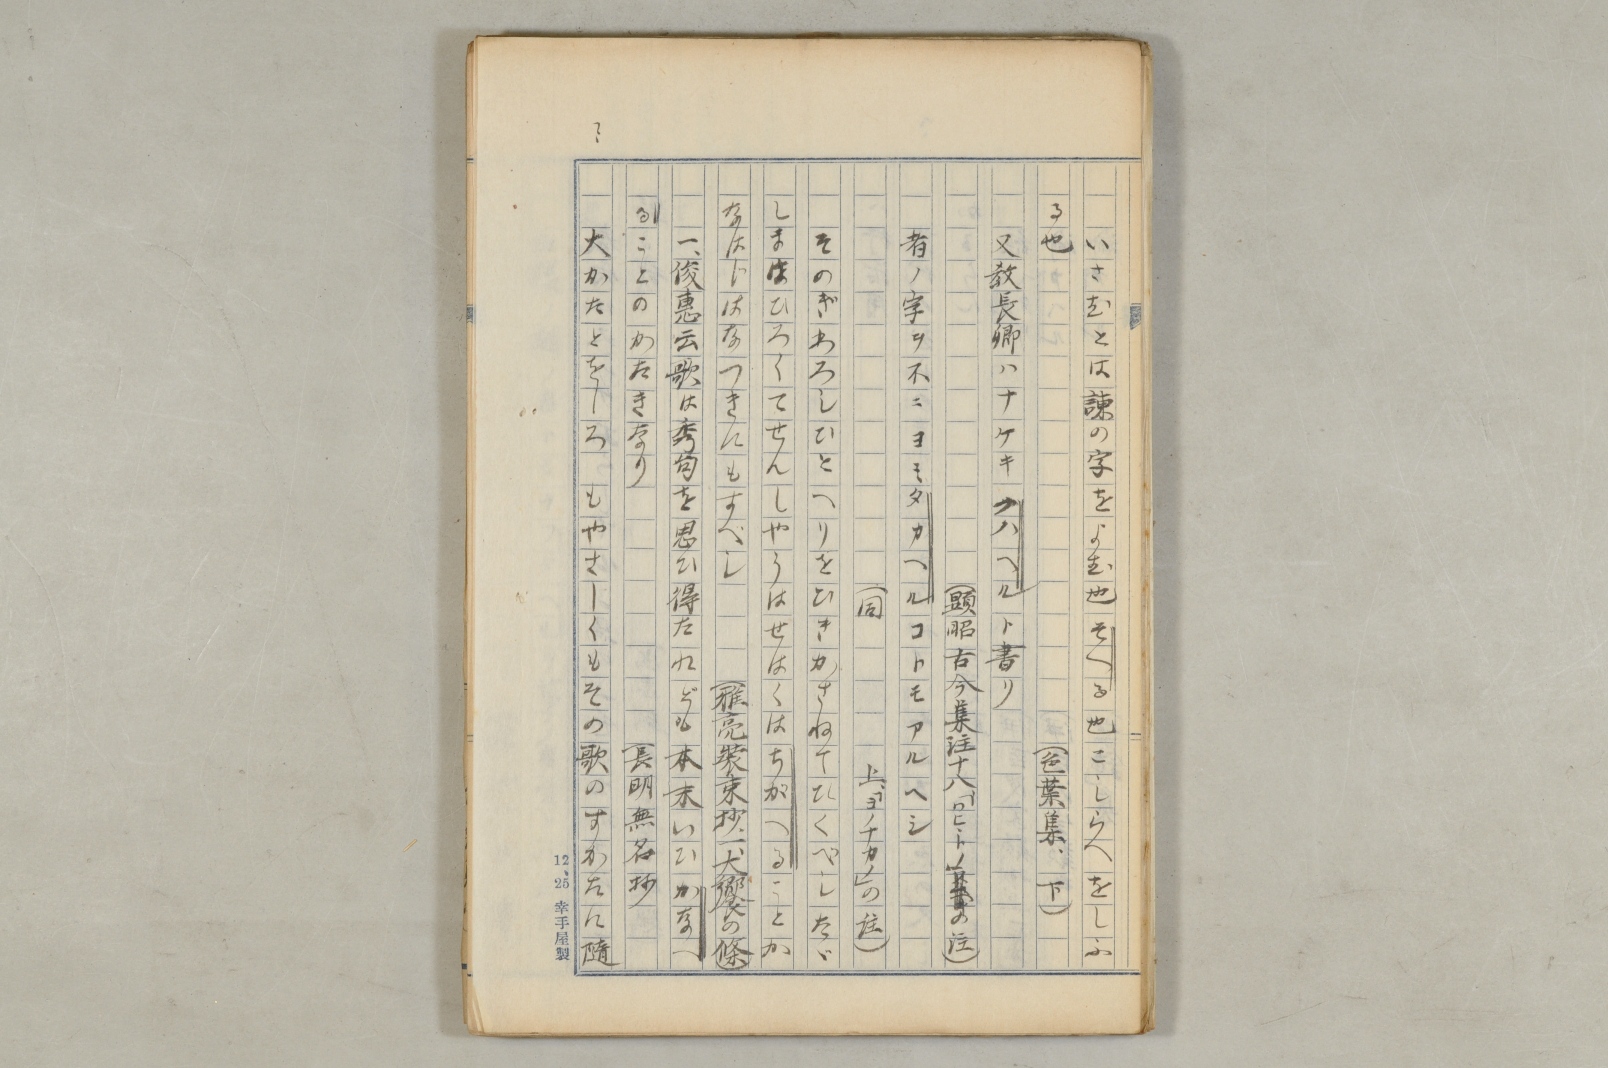 いさむとは諫の字をよむ也そへる也こしらへをしふ
る也
(色葉集、下)
又教長卿ハナケキクハヘルト書リ
(顕昭古今集注十八「ワヒトノ」の注)
者ノ字ヲ不ニヨミタカヘルコトモアルヘシ
(同 上、「ヨノナカノ」の注)
そのぎわろしひとへりをひきかさねてひくやしたゞ
しまはひろくてせんしやうはせはくはちがへることか
なはじはなつきにもすべし
(雅亮装束抄、一、大饗の條)
一、俊惠云歌は秀句を思ひ得たれども本末いひかなへ
ることのかたきなり
(長明無名抄
大かたとをしろもやさしくもその歌のすかたに隨
12、25 幸手屋製